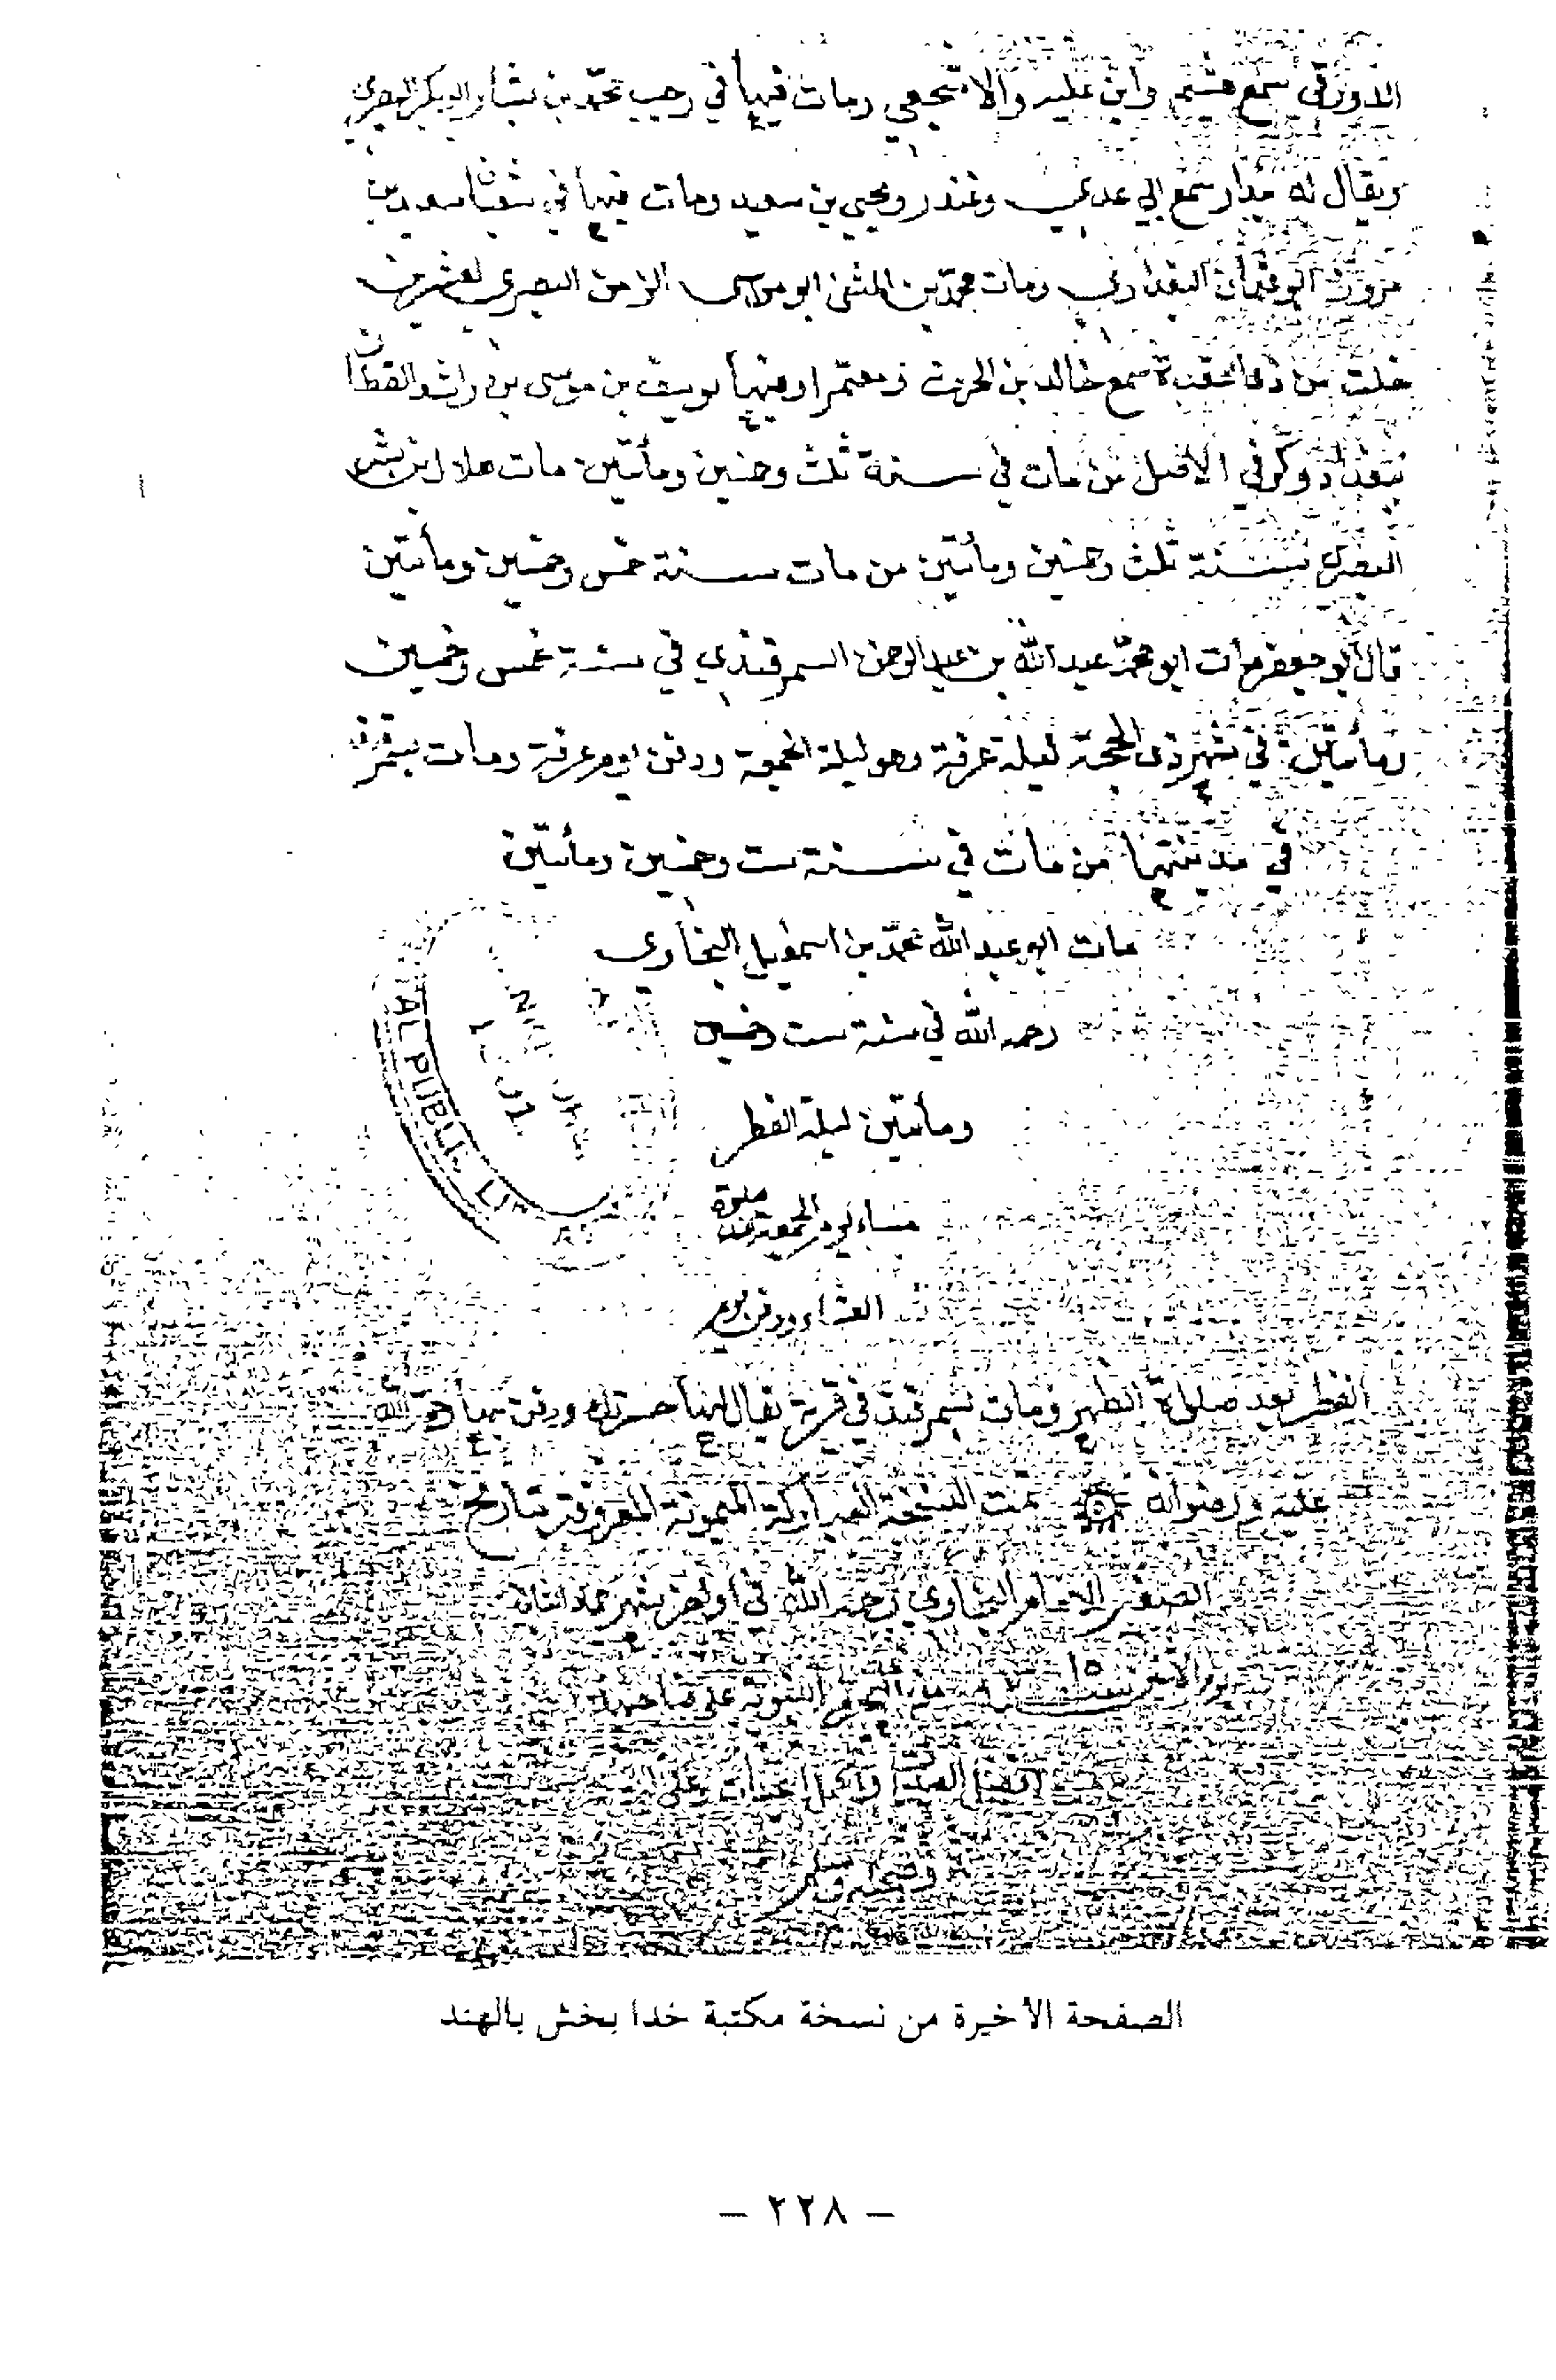 الدورقي سمع هشيم وابن علية والاشجعي ومات فيها في رجب محمد بن بشار ابو بكر البصري
ويقال له بندار سمع ابي عدي وغندر ويحيى بن سعيد ومات فيها في شعبان
البغدادي ومات محمد بن المثنى ابو موسى الزمن البصري لعشر
خلت من ذي القعدة سمع خالد بن الحرث ومعتمرا وفيها يوسف بن موسى بن راشد القطان
ببغداد وكو في الاصل من مات في سنة ثلث وخمسين ومأتين مات هلال بن بشر
البصري سنة ثلث وخمسين ومأتين من مات سنة خمس وخمسين ومأتين
قال ابو جعفر مات ابو محمد عبد الله بن عبد الرحمن السمرقندي في سنة خمس وخمسين
ومأتين في شهر ذي الحجة ليلة عرفة وهو ليلة الجمعة ودفن يوم عرفة ومات بسمرقند
في مدينتها من مات في سنة ست وخمسين ومأتين
مات ابو عبد الله محمد بن اسمعيل البخاري
رحمه الله في سنة ست وخمسين
ومأتين ليلة الفطر
مساء يوم الجمعة عند صلوة
العشاء ودفن يوم
الفطر بعد صلاة الظهر ومات بسمرقند في قرية يقال لها خرتنك ودفن بها رحمة الله
عليه ورضوانه تمت النسخة المباركة الميمونة المعروفة بتاريخ
الصغير الامام البخاري رحمه الله في اواخر شهر جمادى
من الهجرة النبوية على صاحبها
AL PUBLIC LI
الصفحة الاخيرة من نسخة مكتبة خدا بخش بالهند
— ٢٢٨ —